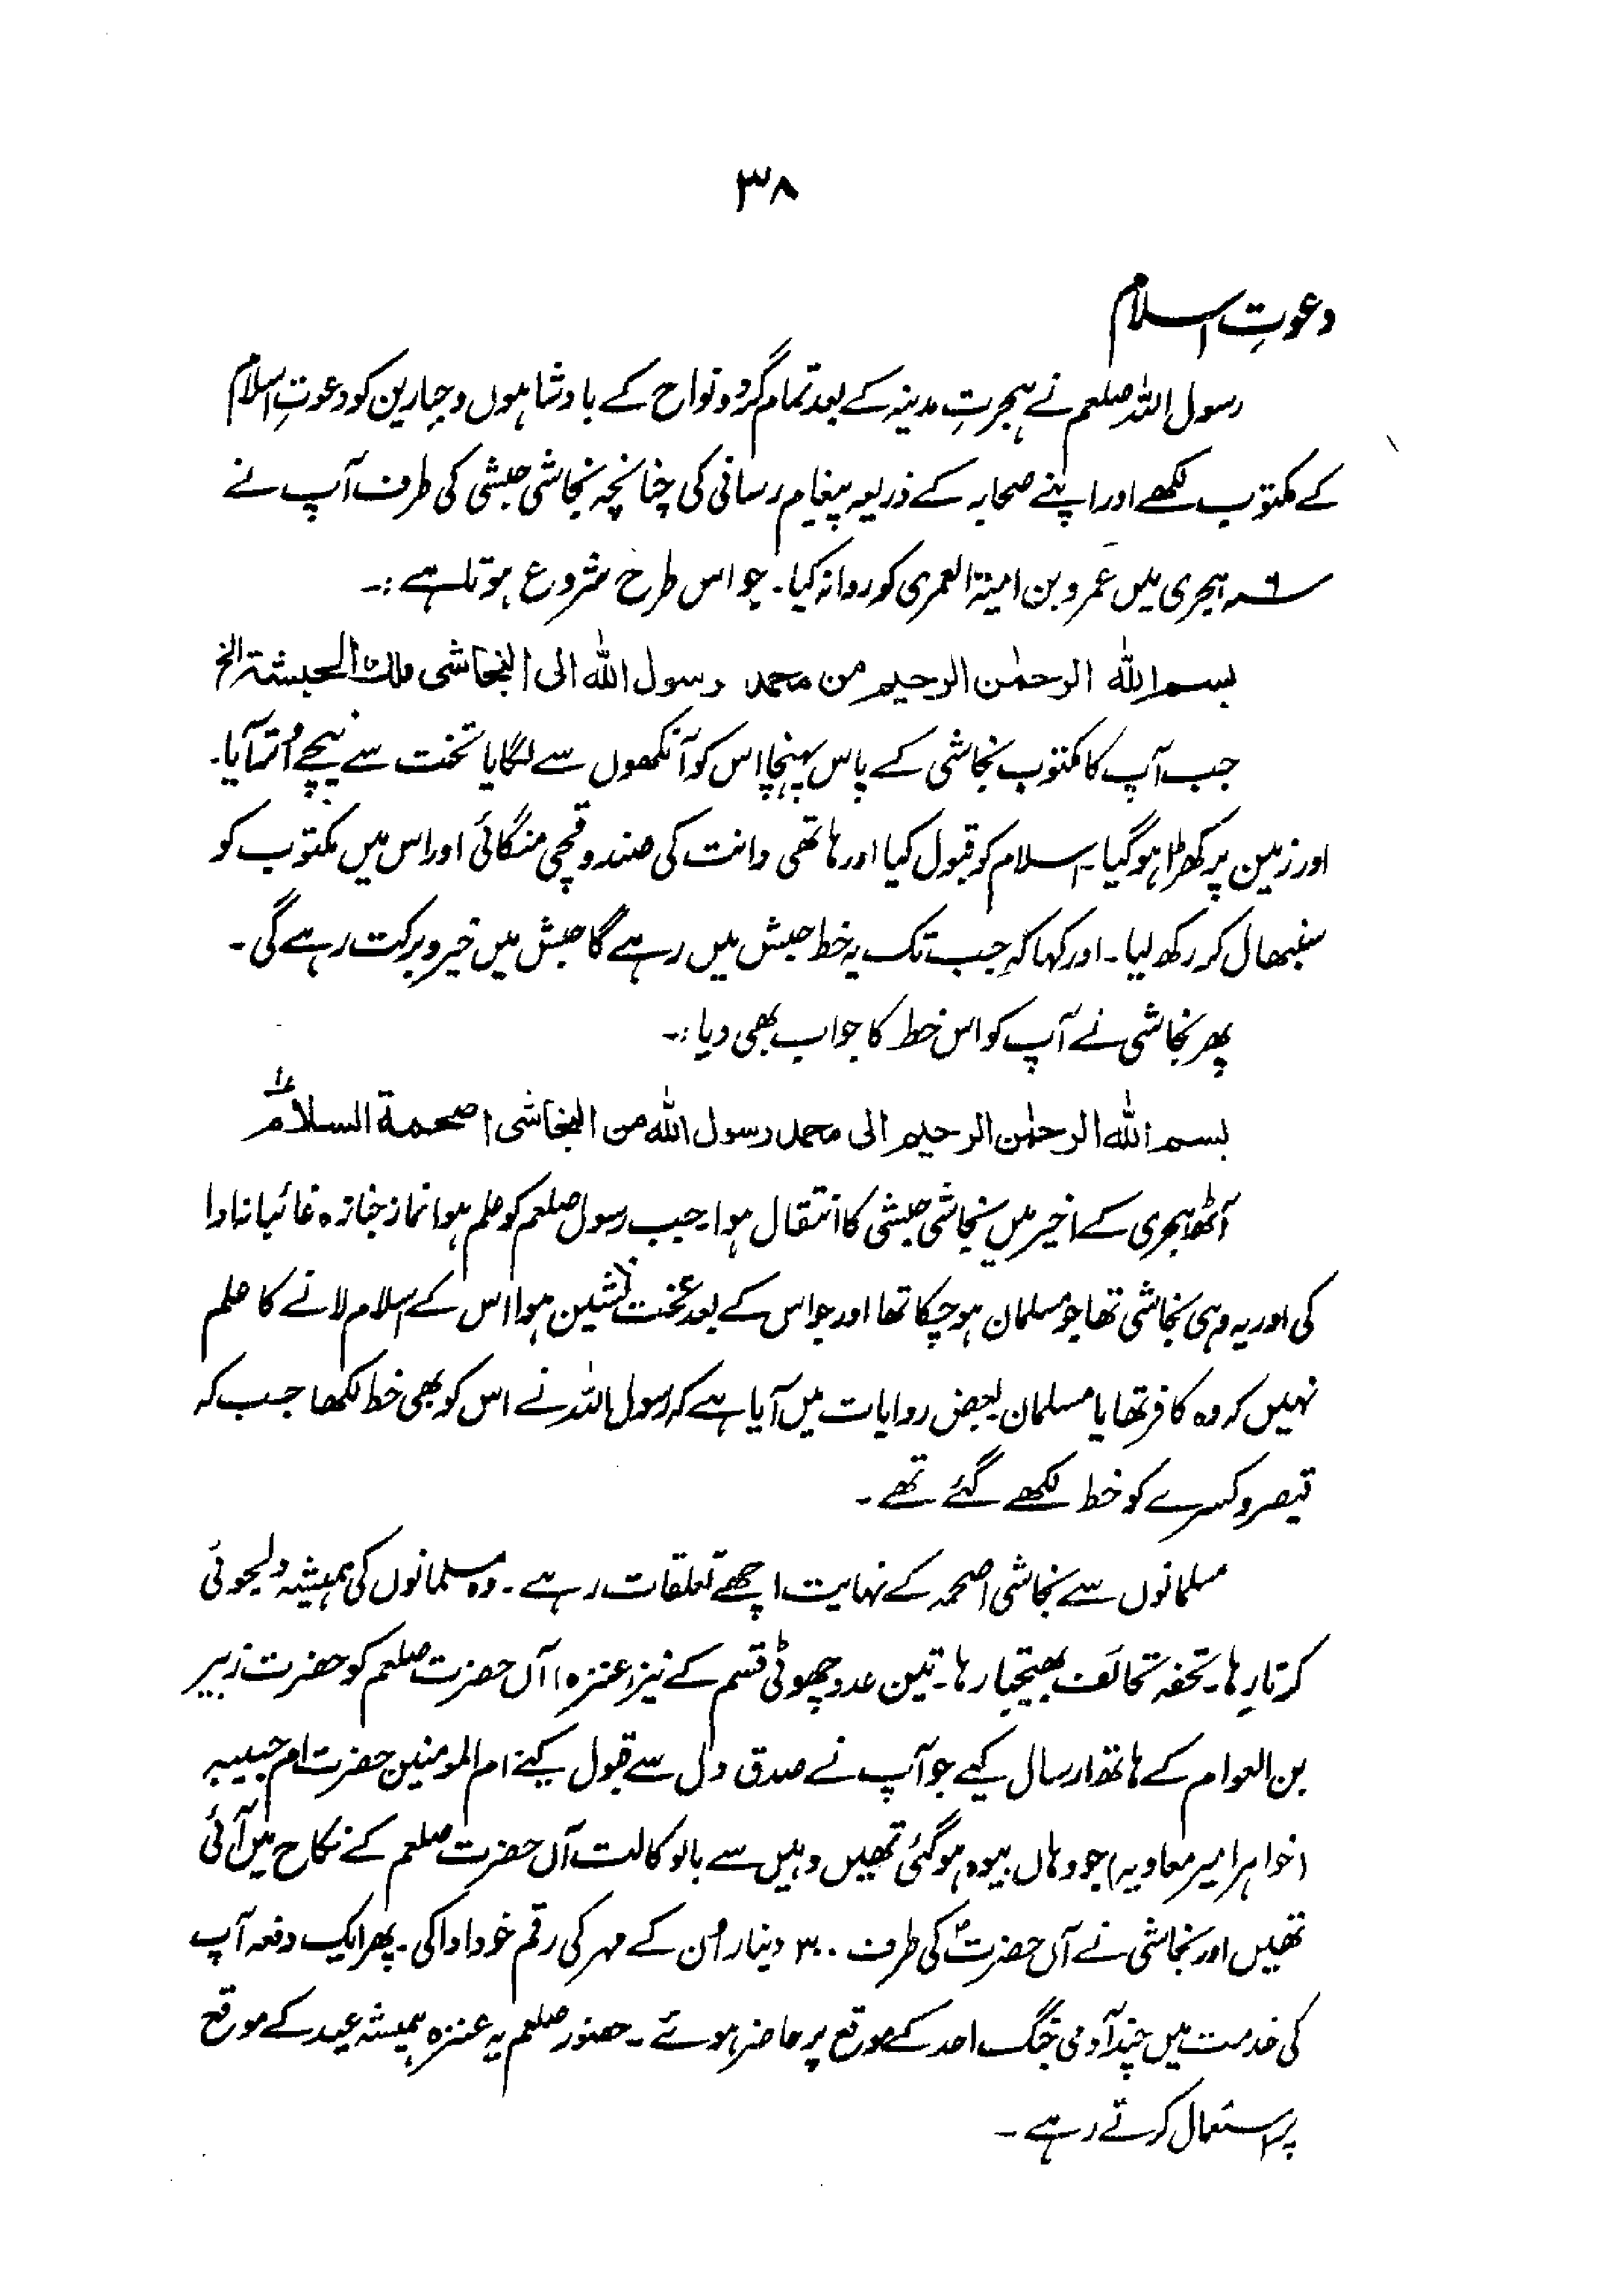 ۳۸
دعوتِ اسلام
رسول اللہ صلعم نے ہجرتِ مدینہ کے بعد تمام گردو نواح کے بادشاہوں وجبارین کو دعوتِ اسلام
کے مکتوب لکھے اور اپنے صحابہ کے ذریعہ پیغام رسانی کی چنانچہ نجاشی حبشی کی طرف آپ نے
۶؁ ہجری میں عمرو بن امیۃ العمری کو روانہ کیا۔ جو اس طرح شروع ہوتا ہے :۔
بسم اللہ الرحمٰن الرحیم من محمد رسول اللہ الی النجاشی ملک الحبشۃ الخ
جب آپ کا مکتوب نجاشی کے پاس پہنچا اس کو آنکھوں سے لگایا تخت سے نیچے اُتر آیا۔
اور زمین پر کھڑا ہو گیا۔ اسلام کو قبول کیا اور ہاتھی دانت کی صندوقچی منگائی اور اس میں مکتوب کو
سنبھال کر رکھ لیا۔ اور کہا کہ جب تک یہ خط حبش میں رہے گا حبش میں خیر و برکت رہے گی۔
پھر نجاشی نے آپ کو اس خط کا جواب بھی دیا :۔
بسم اللہ الرحمٰن الرحیم الی محمد رسول اللہ من النجاشی اصحمۃ السلام
آٹھ ہجری کے اخیر میں نجاشی حبشی کا انتقال ہوا۔ جب رسول صلعم کو علم ہوا نماز جنازہ غائبانہ ادا
کی اور یہ وہی نجاشی تھا جو مسلمان ہو چکا تھا اور جو اس کے بعد تخت نشین ہوا اس کے اسلام لانے کا علم
نہیں کہ وہ کافر تھا یا مسلمان بعض روایات میں آیا ہے کہ رسول اللہ نے اس کو بھی خط لکھا جب کہ
قیصر و کسرے کو خط لکھے گئے تھے۔
مسلمانوں سے نجاشی اصحمہ کے نہایت اچھے تعلقات رہے۔ وہ مسلمانوں کی ہمیشہ دلجوئی
کرتا رہا۔ تحفہ تحائف بھیجتا رہا۔ تین عدد چھوٹی قسم کے نیزے (عنزہ) آں حضرت صلعم کو حضرت زبیر
بن العوام کے ہاتھ ارسال کیے جو آپ نے صدق دل سے قبول کیے ام المومنین حضرت ام حبیبہ
(خواہر امیر معاویہ) جو وہاں بیوہ ہو گئی تھیں وہیں سے بالوکالت آں حضرت صلعم کے نکاح میں آئی
تھیں اور نجاشی نے آں حضرتؐ کی طرف ۳۰۰ دینار اُن کے مہر کی رقم خود ادا کی۔ پھر ایک دفعہ آپ
کی خدمت میں چند آدمی جنگ احد کے موقع پر حاضر ہوئے۔ حضور صلعم یہ عنزہ ہمیشہ عید کے موقع
پر استعمال کرتے رہے۔